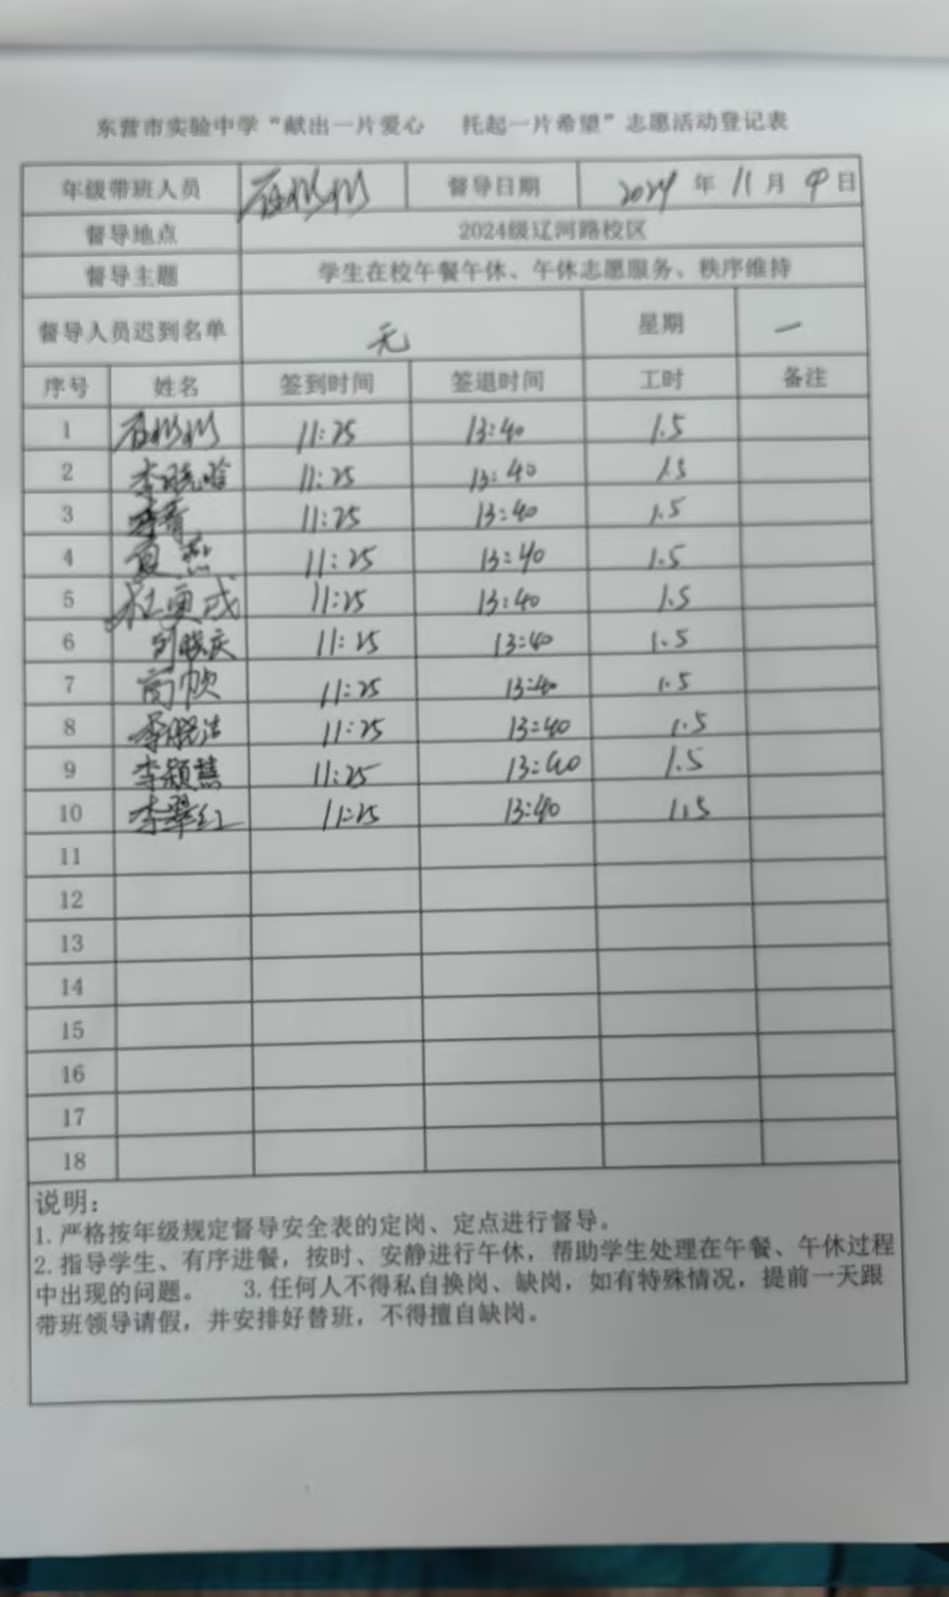 东营市实验中学“献出一片爱心 托起一片希望”志愿活动登记表
年级带班人员 督导日期 2024年11月4日
督导地点 2024级辽河路校区
督导主题 学生在校午餐午休、午休志愿服务、秩序维持
督导人员迟到名单 无 星期 一
序号 姓名 签到时间 签退时间 工时 备注
1 11:25 13:40 1.5
2 李晓晗 11:25 13:40 1.5
3 11:25 13:40 1.5
4 夏燕 11:25 13:40 1.5
5 杜寅成 11:25 13:40 1.5
6 刘晓庆 11:25 13:40 1.5
7 11:25 13:40 1.5
8 李晓洁 11:25 13:40 1.5
9 李颖慧 11:25 13:40 1.5
10 李翠红 11:25 13:40 1.5
11
12
13
14
15
16
17
18
说明：
1.严格按年级规定督导安全表的定岗、定点进行督导。
2.指导学生、有序进餐，按时、安静进行午休，帮助学生处理在午餐、午休过程
中出现的问题。 3.任何人不得私自换岗、缺岗，如有特殊情况，提前一天跟
带班领导请假，并安排好替班，不得擅自缺岗。